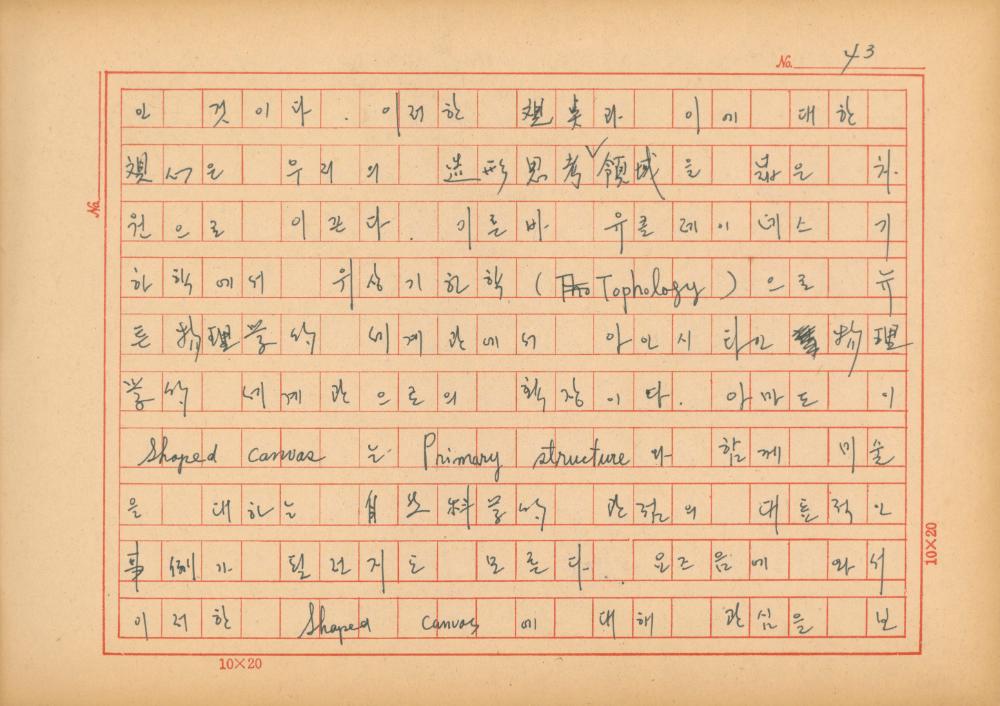 No. 43
인 것이다. 이러한 視興과 이에 대한
視서은 우리의 造形思考領域을 넓은 차
원으로 이끈다. 이른바 유클레이데스 기
하학에서 위상기하학(Tophology)으로 뉴
튼物理学的 세계관에서 아인시타인物理
学的 세계관으로의 확장이다. 아마도 이
Shaped canvas는 Primary structure와 함께 미술
을 대하는 自然科学的 관점의 대표적인
事例가 될런지도 모른다. 요즈음에 와서
이러한 Shaped canvas에 대해 관심을 보
No.
10×20
10×20